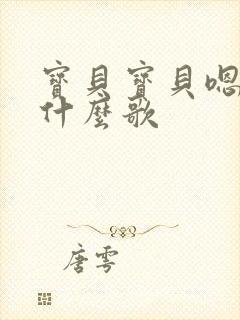 寶貝寶貝嗯
什麼歌
唐雩